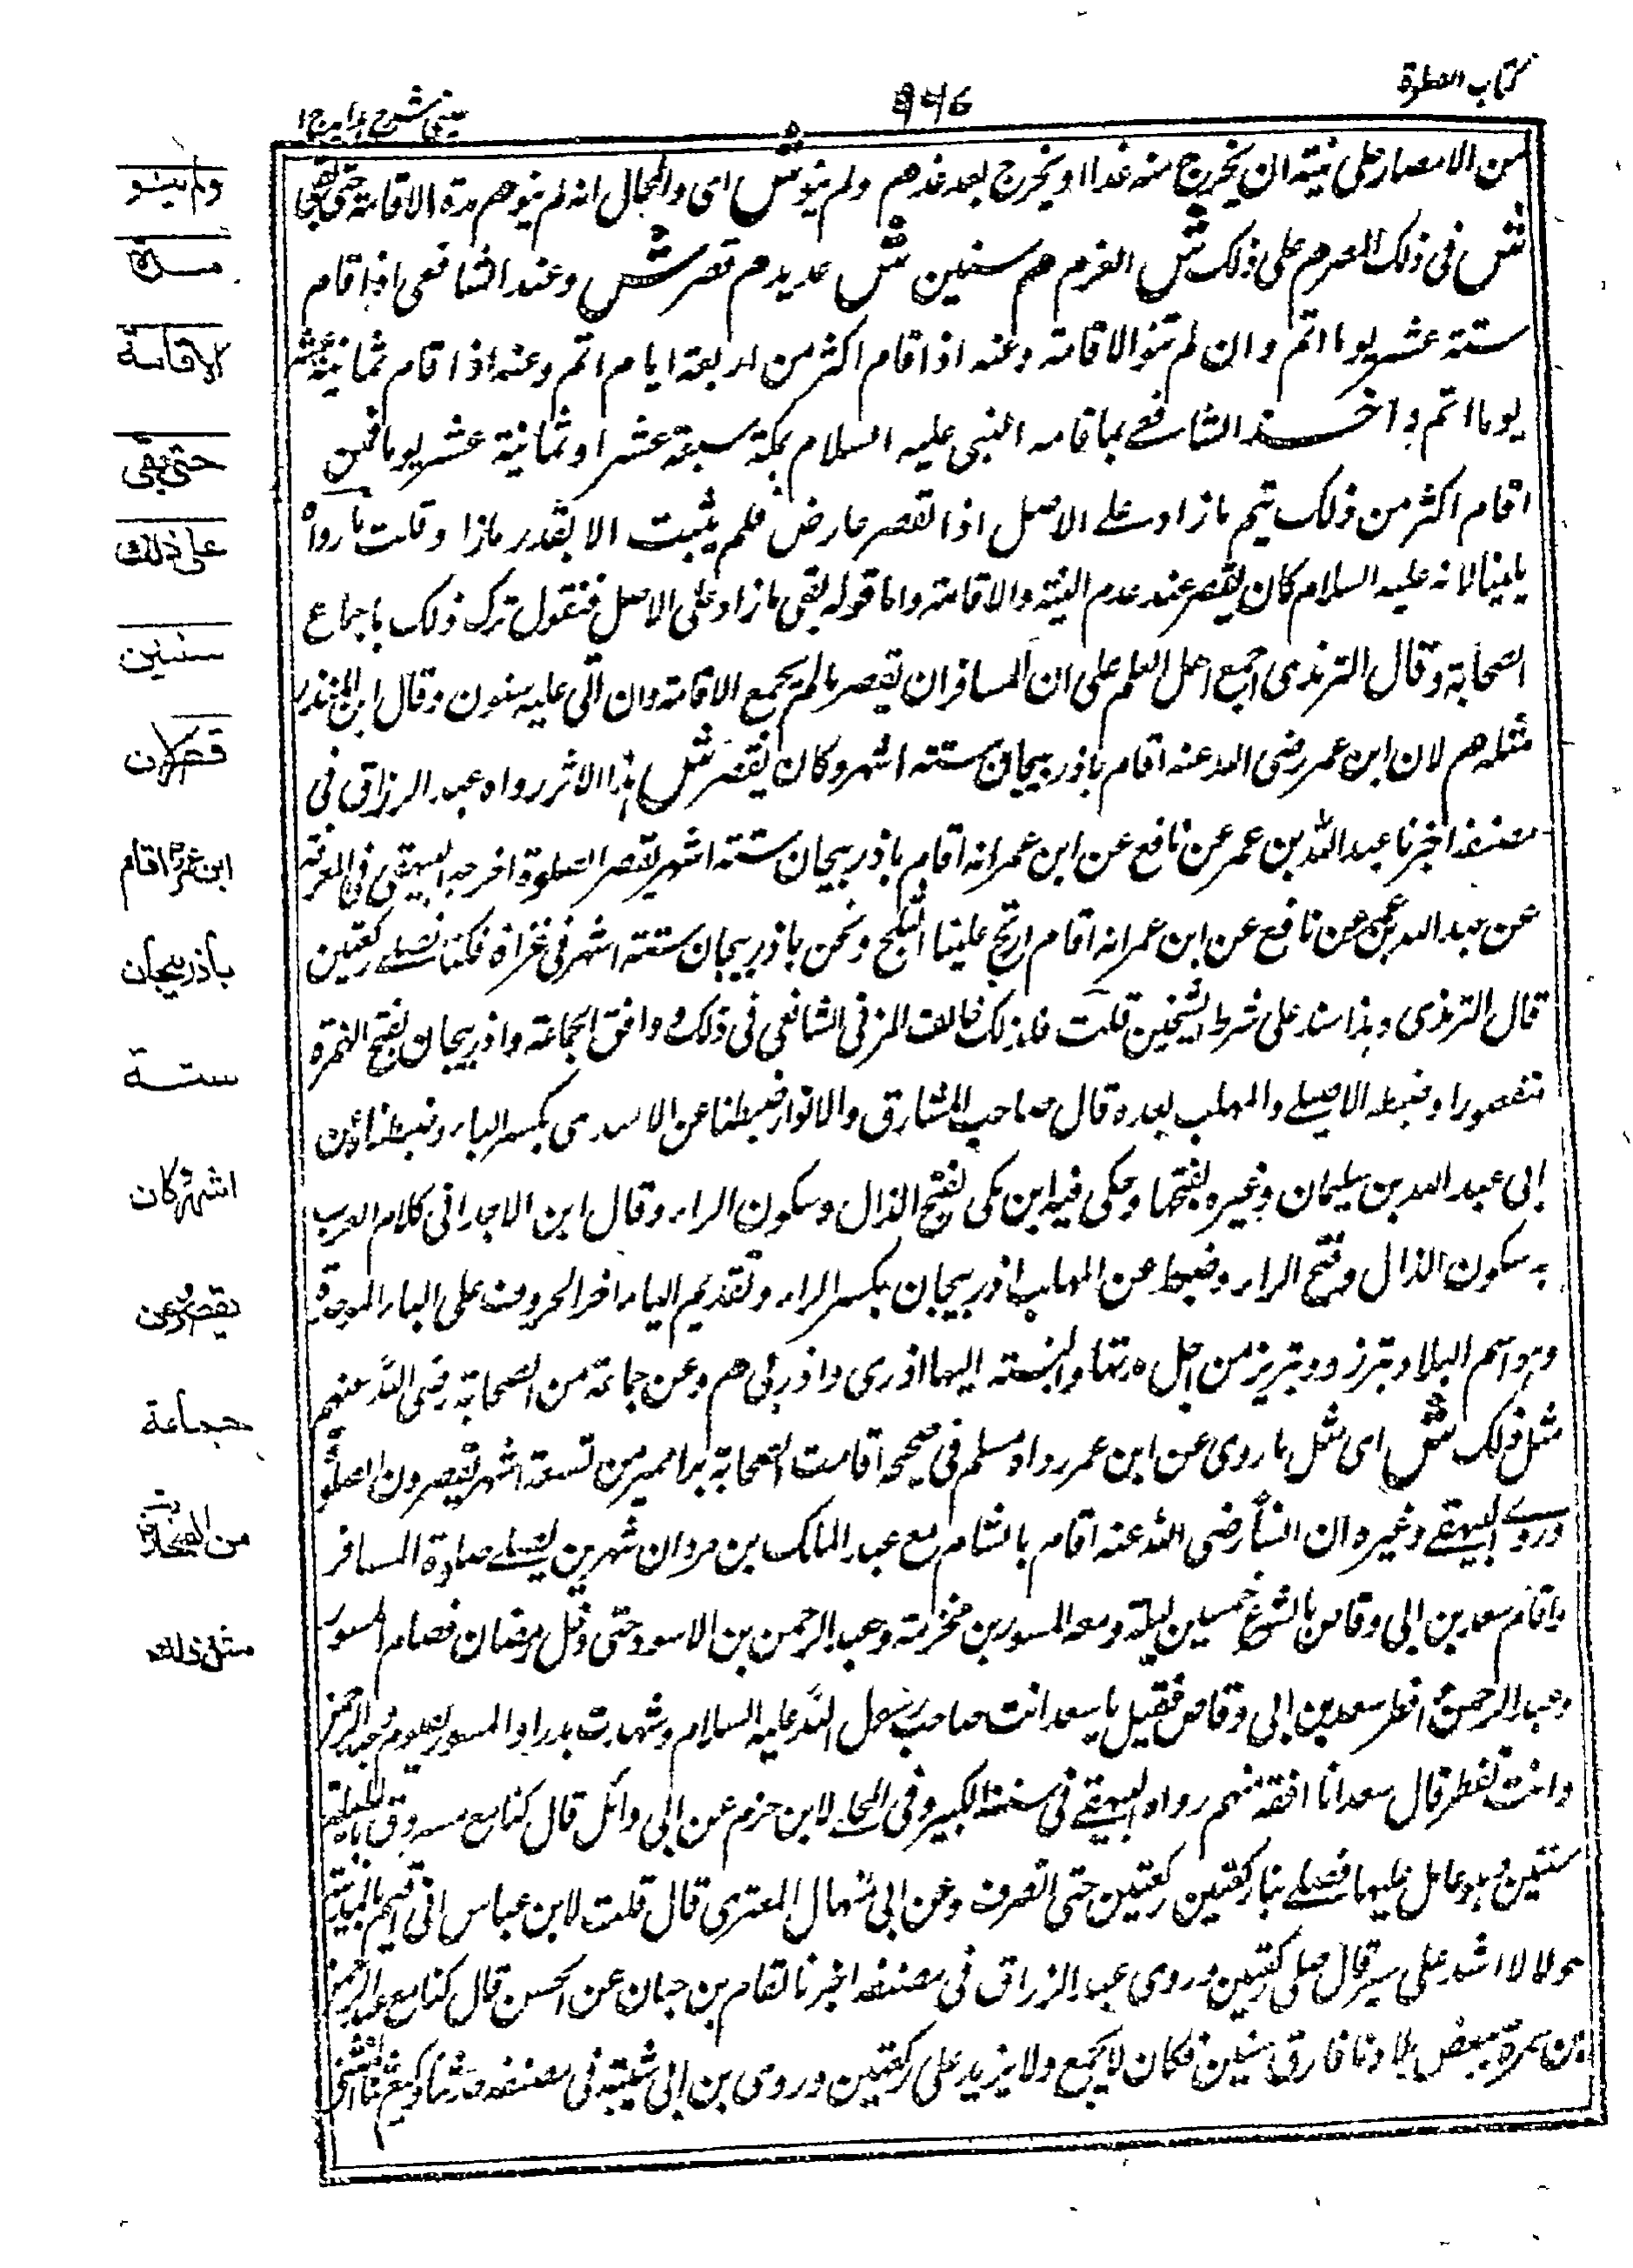 كتاب الصلوة
٩٤٦
عینی شرح ہدایہ ج ١
من الامصار على نيته ان يخرج منه غدا او يخرج بعد غد هم ولم ينو ش اى والحال انه لم ينو هم مدة الاقامة حتى بقى
ش فى ذلك المصر هم على ذلك ش العزم هم سنين ش عديد هم قصر ش وعند الشافعى اذا اقام
ستة عشر يوما اتم وان لم ينو الاقامة وعنه اذا اقام اكثر من اربعة ايام اتم وعنه اذا اقام ثمانية عشر
يوما اتم واخذ الشافعے بما اقامه النبى عليه السلام بمكة سبعة عشر او ثمانية عشر يوما فمن
اقام اكثر من ذلك يتم ما زاد علے الاصل اذا القصر عارض فلم يثبت الا بقدر ما زا وقلت ما رواه
يا بينا لانه عليه السلام كان يقصر عند عدم النية والاقامة واما قوله بقى ما زاد على الاصل فنقول ترك ذلك باجماع
الصحابة وقال الترمذى اجمع اهل العلم على ان المسافر ان يقصر ما لم يجمع الاقامة وان اتى عليه سنون وقال ابن المنذر
مثله هم لان ابن عمر رضى الله عنه اقام باذربيجان ستة اشهر وكان يقصر ش هذا الاثر رواه عبد الرزاق فى
مصنفه اخبرنا عبد الله بن عمر عن نافع عن ابن عمر انه اقام باذربيجان ستة اشهر يقصر الصلوة اخرجه البيهقى فى المعرفة
عن عبد الله بن عمر عن نافع عن ابن عمر انه اقام ارتج علينا الثلج ونحن باذربيجان ستة اشهر فى غزاة فكنا نصلے ركعتين
قال الترمذى وهذا سند على شرط الشيخين قلت فلذلك خالف المزنى الشافعى فى ذلك ووافق الجماعة واذربيجان بفتح الهمزة
مقصورا وضبطه الاصيلے والمهلب بعده قال صاحب المشارق والانوار ضبطنا عن الاسدى بكسر الباء وضبطناه عن
ابى عبد الله بن سليمان وغيره بفتحها وحكى فيه ابن مكى بفتح الذال وسكون الراء وقال ابن الاجدابى كلام العرب
به سكون الذال وفتح الراء وضبط عن المهلب اذربيجان بكسر الراء وتقديم الياء اخر الحروف على الباء الموحدة
وهو اسم البلاد تبرز ووتبريز من اجل مدنها والنسبة اليها اذرى واذربى هم وعن جماعة من الصحابة رضى الله عنهم
مثل ذلك ش اى مثل ما روى عن ابن عمر رواه مسلم فى صحيحه اقامت الصحابة برامهرمز تسعة اشهر يقصرون الصلوة
وروے البيهقے وغيره ان انسا رضى الله عنه اقام بالشام مع عبد الملك بن مروان شهرين يصلے صلوة المسافر
واقام سعد بن ابى وقاص بالشرع خمسين ليلة ومعه المسور بن مخرمة وعبد الرحمن بن الاسود حتى دخل رمضان فصام المسور
وعبد الرحمن وافطر سعد بن ابى وقاص فقيل يا سعد انت صاحب رسول الله عليه السلام وشهدت بدرا والمسور يصوم وعبد الرحمن
وانت تفطر قال سعد انا افقه منهم رواه البيهقے فى سننه الكبير وفى المحلے لابن حزم عن ابى وائل قال كنا مع مسروق بالسلسلة
سنتين وهو عامل عليها فصلے بنا ركعتين ركعتين حتى انصرف وعن ابى منهال العنزى قال قلت لابن عباس انى اقيم بالمدينة
حولا لا اشد على سير قال صلى ركعتين وروى عبد الرزاق فى مصنفه اخبرنا هشام بن حسان عن الحسن قال كنا مع عبد الرحمن
بن سمرة ببعض بلاد فارس سنين فكان لا يجمع ولا يزيد على ركعتين وروى بن ابى شيبة فى مصنفه حدثنا وكيع ثنا المثنى
ولم ينو
مدة
الاقامة
حتى بقى
على ذلك
سنين
قصر لان
ابن عمرؓ اقام
باذربيجان
ستة
اشهر وكان
يقصر وعن
جماعة
من الصحابةؓ
مثل ذلك